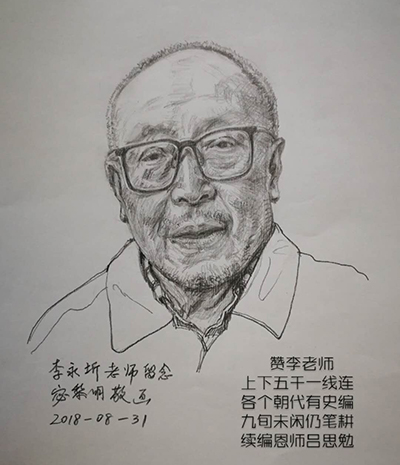 李永圻老师留念
敬画
2018-08-31
赞李老师
上下五千一线连
各个朝代有史编
九旬未闲仍笔耕
续编恩师吕思勉